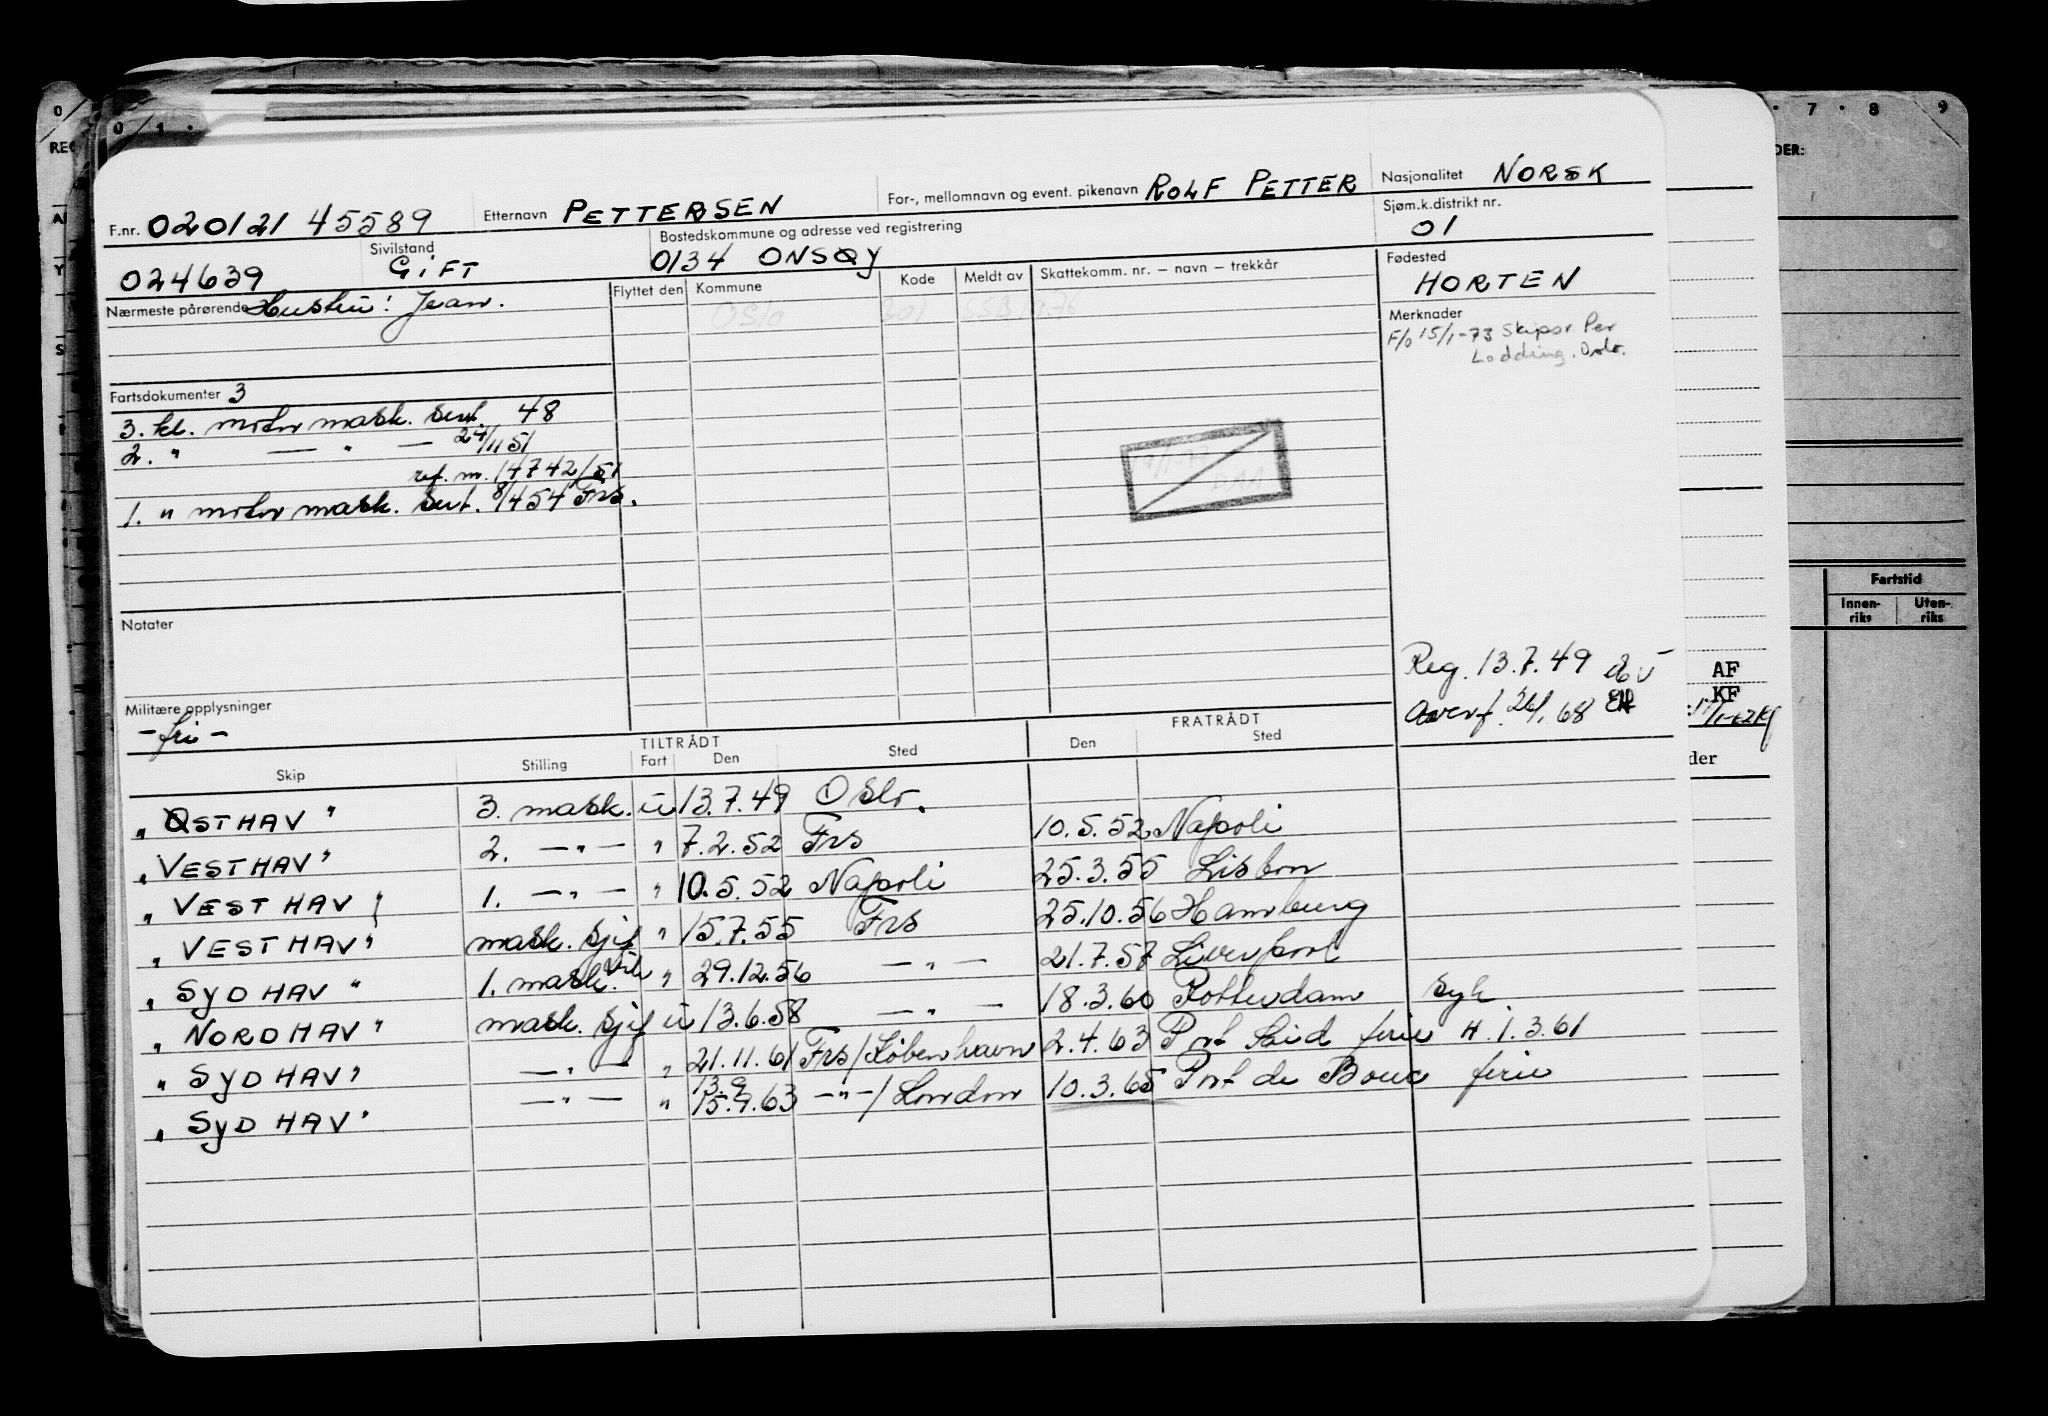 F.nr. 020121 45589 Etternavn PETTERSEN For-, mellomnavn og event. pikenavn ROLF PETTER Nasjonalitet NORSK
024639 Sivilstand GIFT Bostedskommune og adresse ved registrering 0134 ONSØY Sjøm.k.distrikt nr. 01
Nærmeste pårørende Hustru: Jean. Flyttet den Kommune Kode Meldt av Skattekomm. nr. – navn – trekkår Fødested HORTEN
Oslo 301 SSB 1976
Merknader
F/o 15/1-73 Skipsr. Per
Lodding. Oslo.
Fartsdokumenter 3
3. kl. motor mask. sert. 48
2. " — " — 24/11 51
ref. m. 14742/51
1. " motor mask. sert. 8/4 54 Frs.
Notater
Militære opplysninger
- fri -
Reg. 13.7.49
Overf. 26/1 68
TILTRÅDT FRATRÅDT
Skip Stilling Fart Den Sted Den Sted
" ØSTHAV " 3. mask. u 13.7.49 Oslo.
" VESTHAV " 2. — " — " 7.2.52 Frs 10.5.52 Napoli
" VESTHAV " 1. — " — " 10.5.52 Napoli 25.3.55 Lisbon
" VESTHAV " mask. sjef " 15.7.55 Frs 25.10.56 Hamburg
" SYDHAV " 1. mask. vik " 29.12.56 — " — 21.7.57 Liverpool
" NORDHAV " mask. sjef u 13.6.58 — " — 18.3.60 Rotterdam syk
" SYDHAV " — " — " 21.11.61 Frs/København 2.4.63 Port Said ferie H. 1.3.61
" SYDHAV " — " — " 13.9 15.9.63 — " — / London 10.3.65 Port de Bouc ferie
0 1
REC
7 · 8 9
DER:
Fartstid
Innen-
riks
Uten-
riks
AF
KF
der